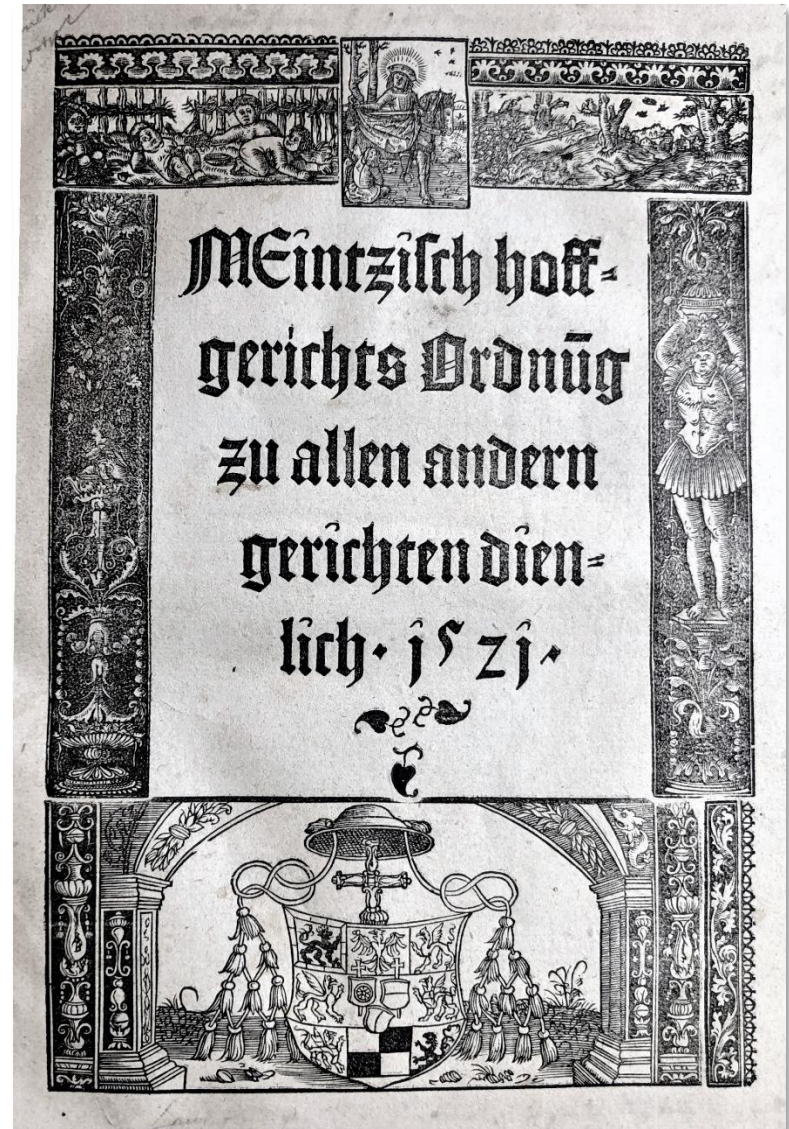 MEintziſch hoff⸗
gerichts Ordnūg
zu allen andern
gerichten dien⸗
lich· jſ2j·